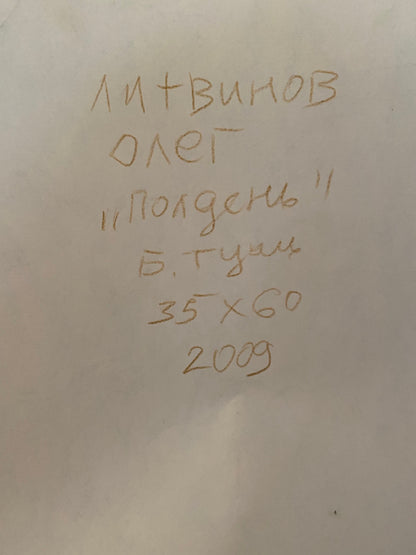 Литвинов
Олег
„Полдень"
Б. Тушь
35 x 60
2009